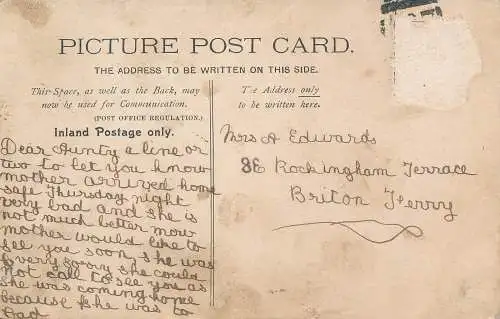 PICTURE POST CARD.
THE ADDRESS TO BE WRITTEN ON THIS SIDE.
This Space, as well as the Back, may
now be used for Communication.
(POST OFFICE REGULATION.)
Inland Postage only.
The Address only
to be written here.
Dear Aunty a line or
two to let you know
mother arrived home
safe Thursday night
very bad and she is
not much better now
mother would like to
see you soon, she was
very sorry she could
not call to see you as
she was coming home
because she was to
bad
Mrs A Edwards
36 Rockingham Terrace
Briton Ferry